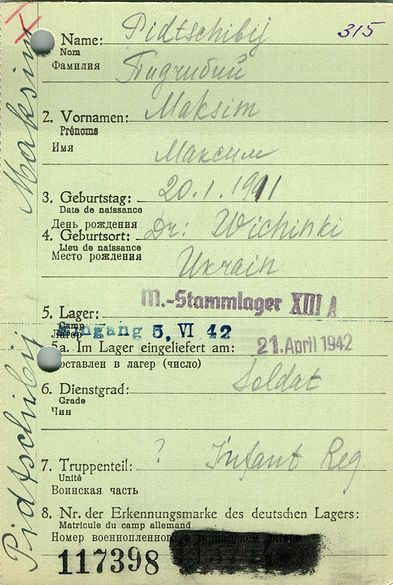 315
Name: Pidtschibij
Nom
Фамилия Пидчибий
2. Vornamen: Maksim
Prénoms
Имя Максим
3. Geburtstag: 20.1.1911
Date de naissance
День рождения
4. Geburtsort: Dr: Wichinki
Lieu de naissance
Место рождения Ukrain
5. Lager: M.-Stammlager XIII A
Camp
Лагерь
Eingang 5. VI 42
5a. Im Lager eingeliefert am: 21. April 1942
оставлен в лагер (число)
6. Dienstgrad: Soldat
Grade
Чин
7. Truppenteil: ? Infant Reg
Unité
Воинская часть
8. Nr. der Erkennungsmarke des deutschen Lagers:
Matricule du camp allemand
Номер военнопленного
117398
Pidtschibij Maksim